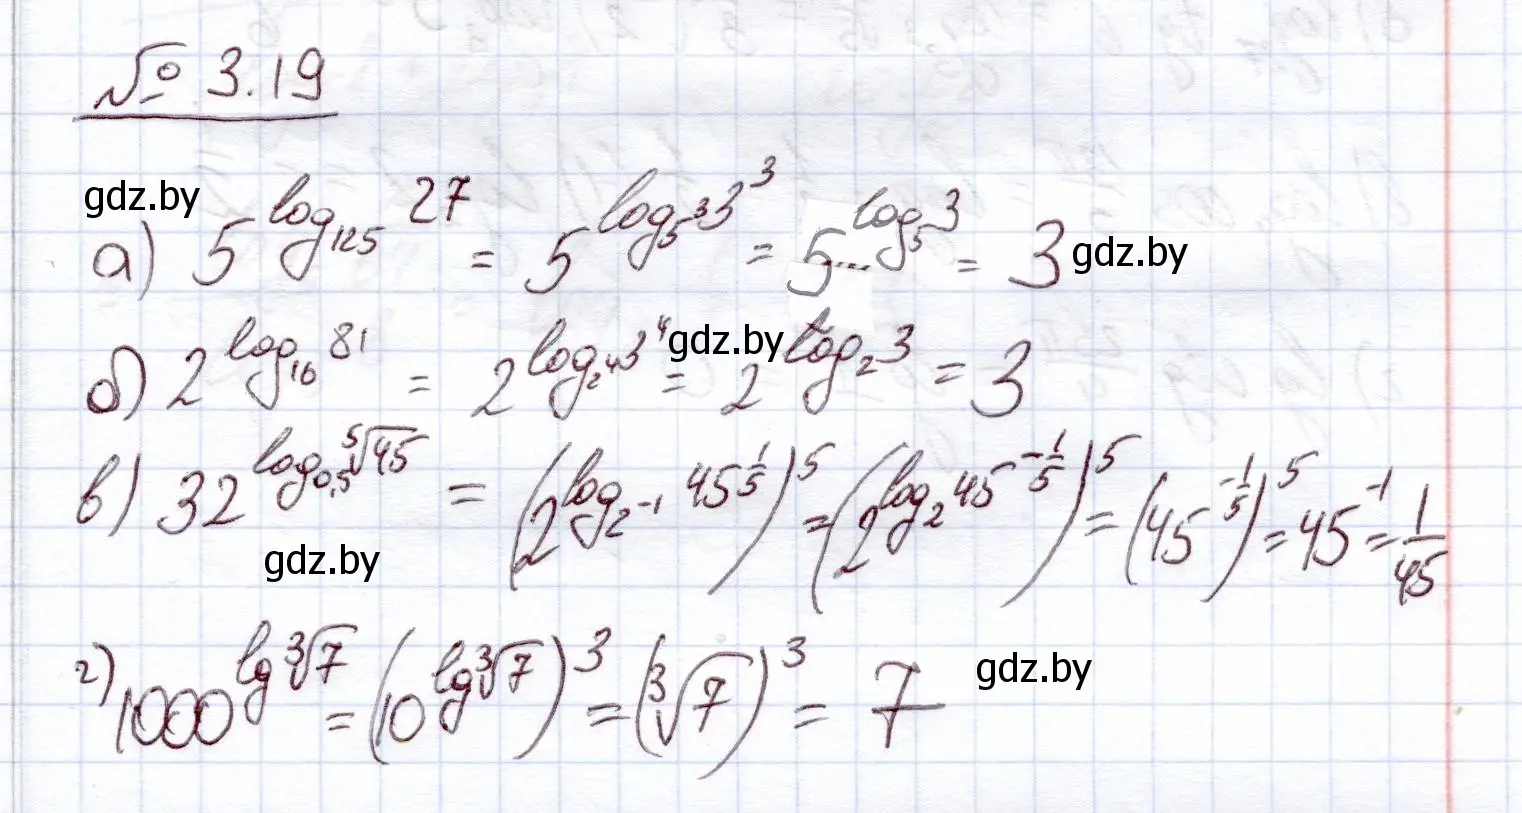 № 3.19
gdz.by
а) 5^{log_{125} 27} = 5^{log_{5^3} 3^3} = 5^{... log_5 3} = 3 gdz.by
б) 2^{log_{16} 81} = 2^{log_{2^4} 3^4} gdz.by = 2^{log_2 3} = 3
в) 32^{log_{0,5} \sqrt[5]{45}} = (2^{log_{2^{-1}} 45^{\frac{1}{5}}})^5 = (2^{log_2 45^{-\frac{1}{5}}})^5 = (45^{-\frac{1}{5}})^5 = 45^{-1} = \frac{1}{45}
gdz.by
г) 1000^{lg \sqrt[3]{7}} = (10^{lg \sqrt[3]{7}})^3 = (\sqrt[3]{7})^3 = 7 gdz.by